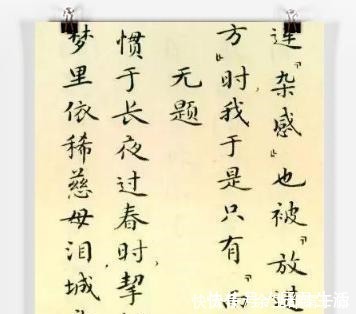 连『杂感』也被『放进
方』时,我于是只有『
无题
惯于长夜过春时,挈
梦里依稀慈母泪,城